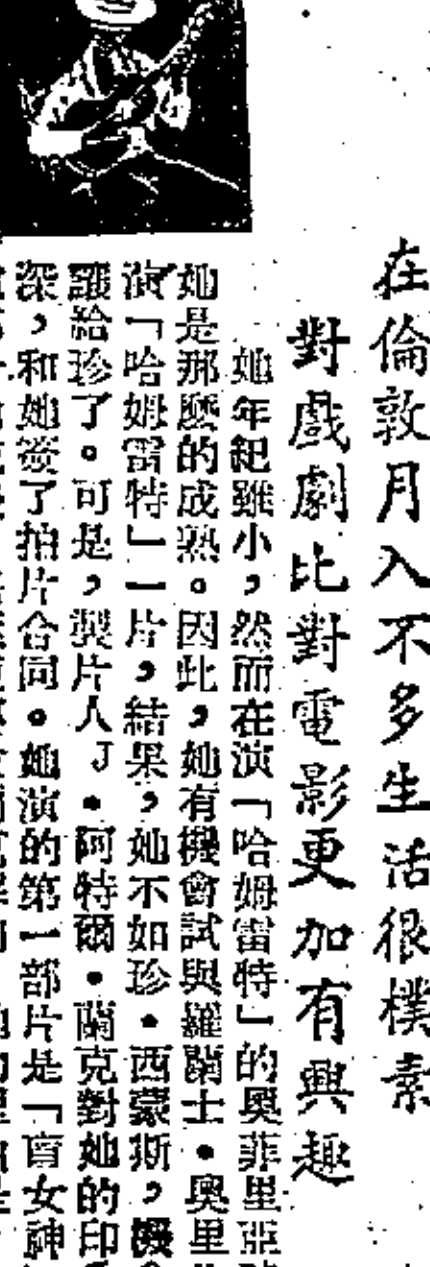 在倫敦月入不多生活很樸素
對戲劇比對電影更加有興趣
她年紀雖小，然而在演「哈姆雷特」的奧菲里亞
她是那麼的成熟。因此，她有機會試與羅蘭士·奧里
演「哈姆雷特」一片，結果，她不如珍·西蒙斯，機
讓給珍了。可是，製片人J·阿特爾·蘭克對她的印
深，和她簽了拍片合同。她演的第一部片是「盲女神